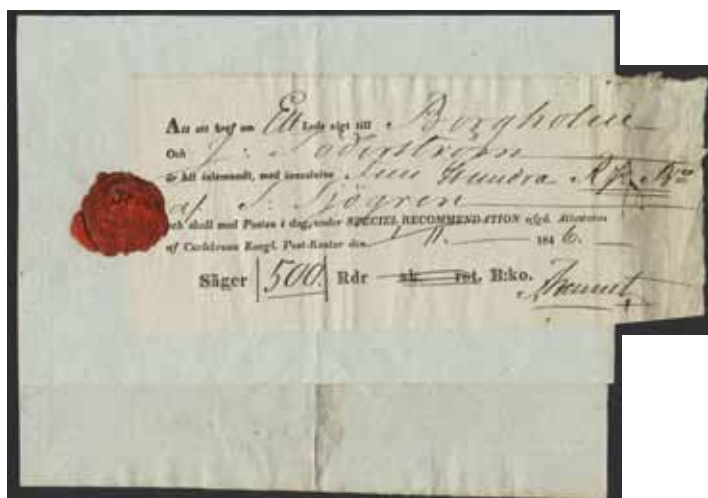 Att ett bref om Ett Lods vigt till Borgholm
Och J. Söderström
är hit inlemnadt, med innealuten Fem Hundra
af S. Sjögren
och skall med Posten i dag, under SPECIEL RECOMMENDATION afgå. Attesteras
af Carlskrona Kongl. Post-Kontor den 1846.
Säger 500. Rdr sk. rst. B:ko.